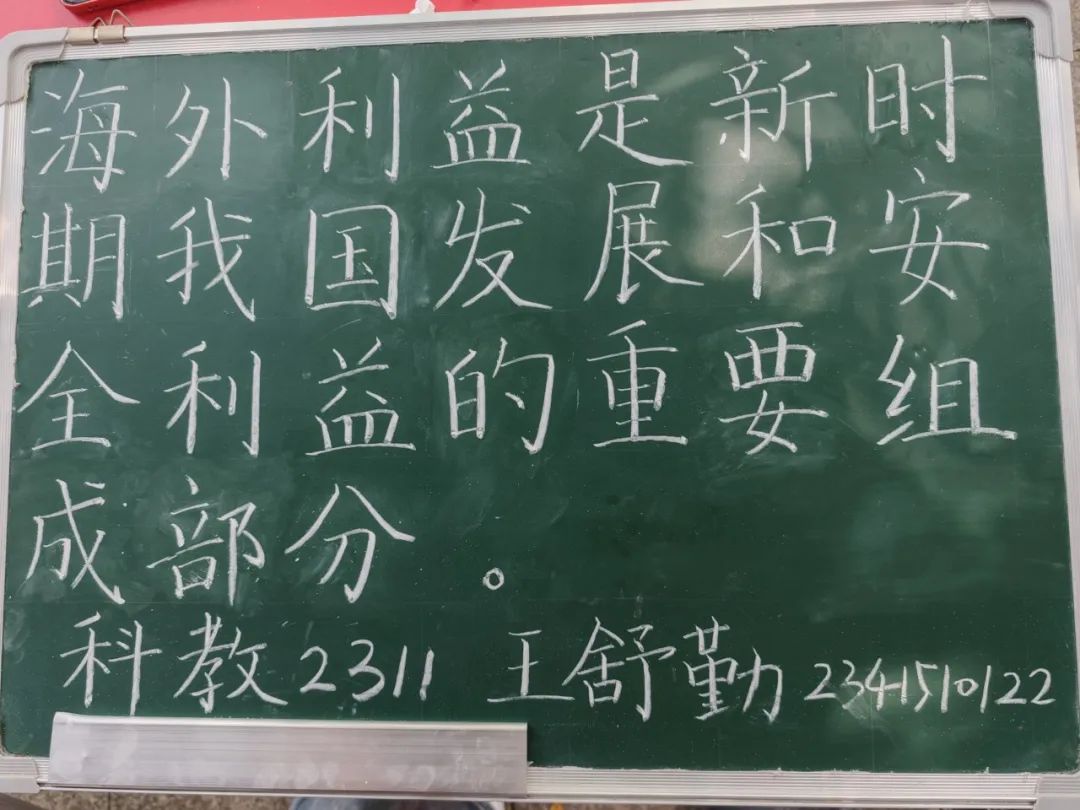 海外利益是新时
期我国发展和安
全利益的重要组
成部分。
科教2311 王舒勤 2341510122